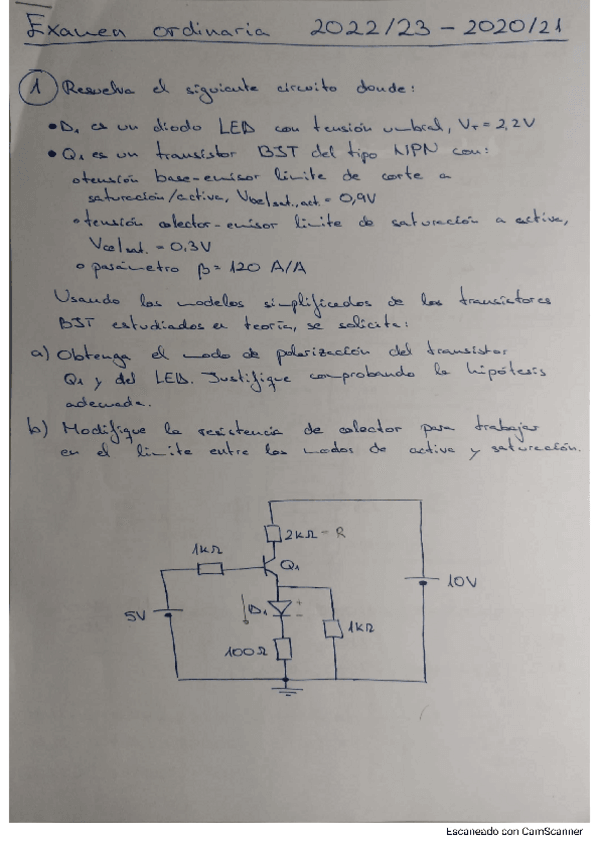 Examen ordinaria 2022/23 - 2020/21
1 Resuelva el siguiente circuito donde:
• D₁ es un diodo LED con tensión umbral, Vγ = 2,2V
• Q₁ es un transistor BJT del tipo NPN con:
o tensión base-emisor límite de corte a
saturación/activa, Vbe|sat.,act. = 0,9V
o tensión colector-emisor límite de saturación a activa,
Vce|sat. = 0,3V
o parámetro β = 120 A/A
Usando los modelos simplificados de los transistores
BJT estudiados en teoría, se solicita:
a) Obtenga el modo de polarización del transistor
Q₁ y del LED. Justifique comprobando la hipótesis
adecuada.
b) Modifique la resistencia de colector para trabajar
en el límite entre los modos de activa y saturación.
2KΩ - R
1KΩ
Q₁
10V
5V
D₁ + -
1KΩ
100Ω
Escaneado con CamScanner